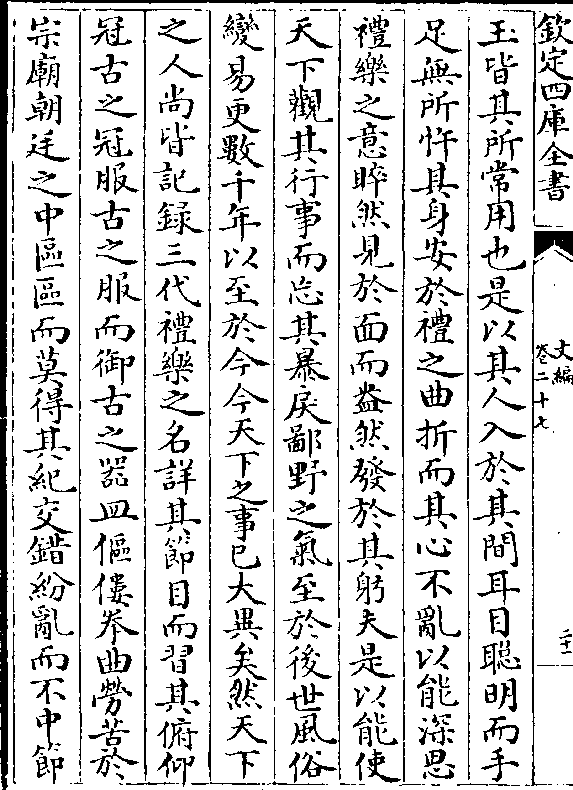 欽定四庫全書
文編
卷二十七
二十一
玉皆其所常用也是以其人入於其間耳目聰明而手
足無所忤其身安於禮之曲折而其心不亂以能深思
禮樂之意睟然見於面而盎然發於其躬夫是以能使
天下觀其行事而忘其暴戾鄙野之氣至於後世風俗
變易更數千年以至於今今天下之事已大異矣然天下
之人尚皆記録三代禮樂之名詳其節目而習其俯仰
冠古之冠服古之服而御古之器皿傴僂拳曲勞苦於
宗廟朝廷之中區區而莫得其紀交錯紛亂而不中節